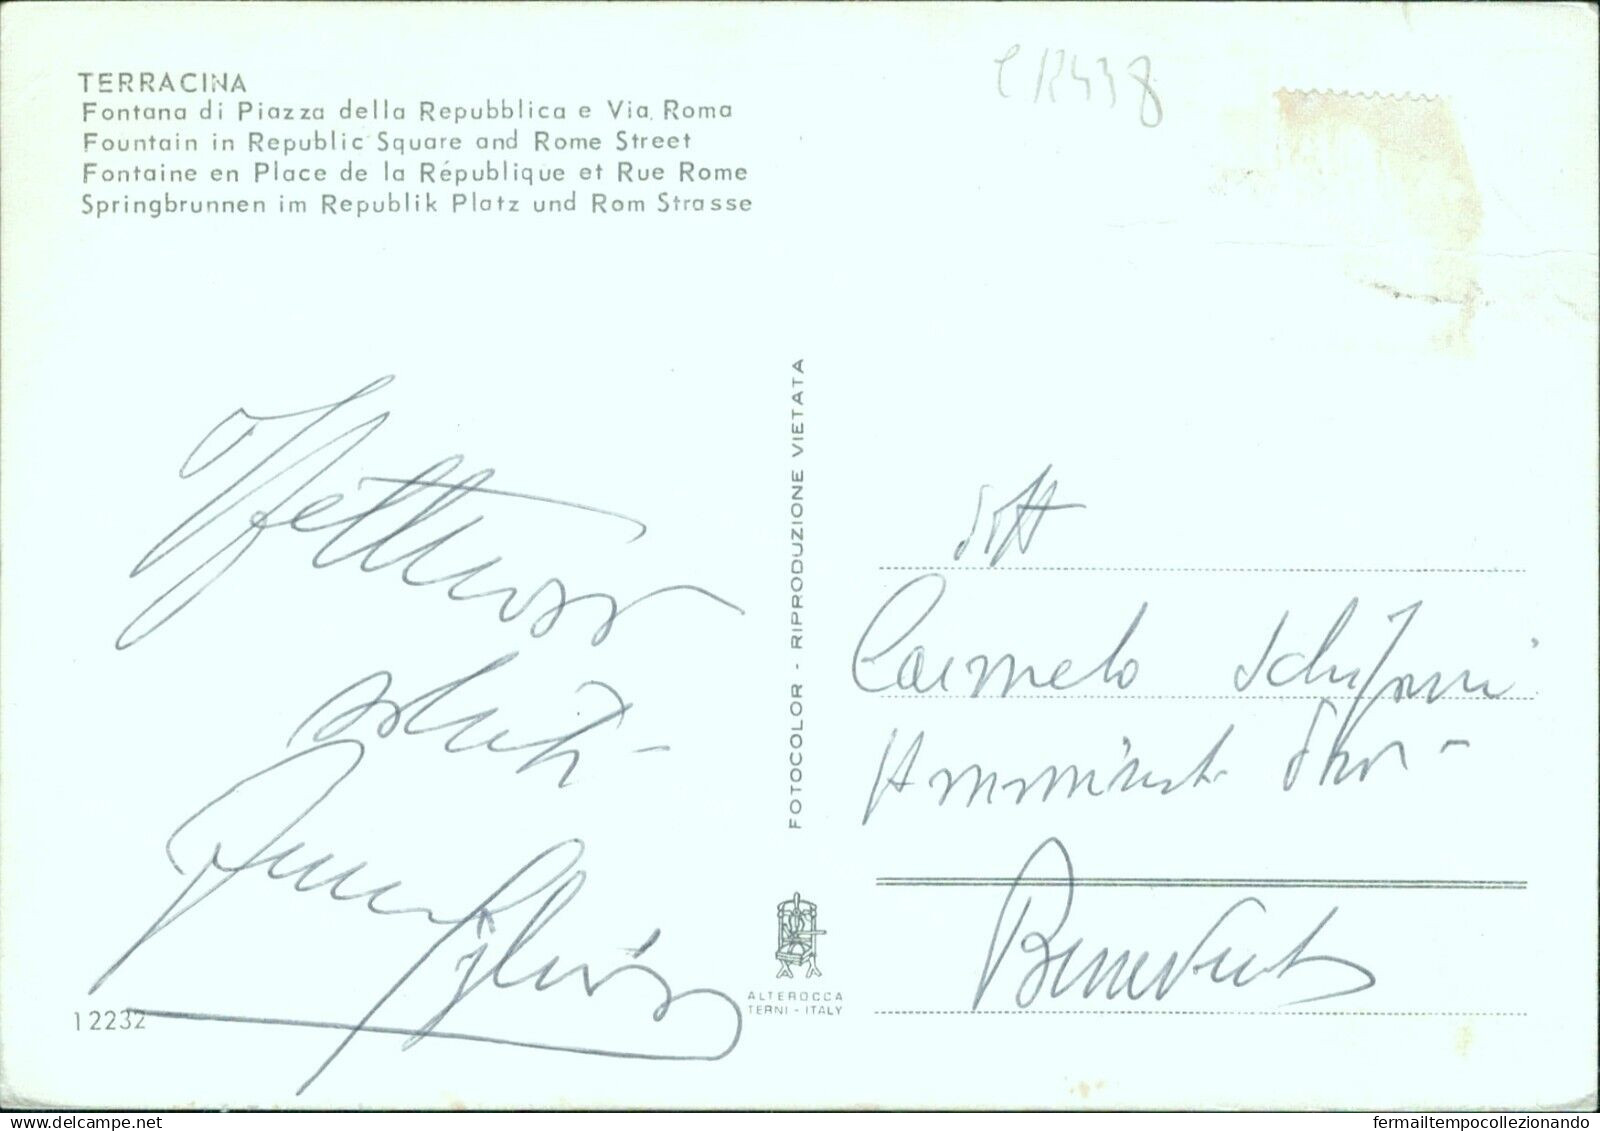 TERRACINA
Fontana di Piazza della Repubblica e Via Roma
Fountain in Republic Square and Rome Street
Fontaine en Place de la République et Rue Rome
Springbrunnen im Republik Platz und Rom Strasse
Affettuosi
saluti
FOTOCOLOR - RIPRODUZIONE VIETATA
ALTEROCCA
TERNI - ITALY
12232
Dott
Carmelo
Benevento
fermailtempocollezionando